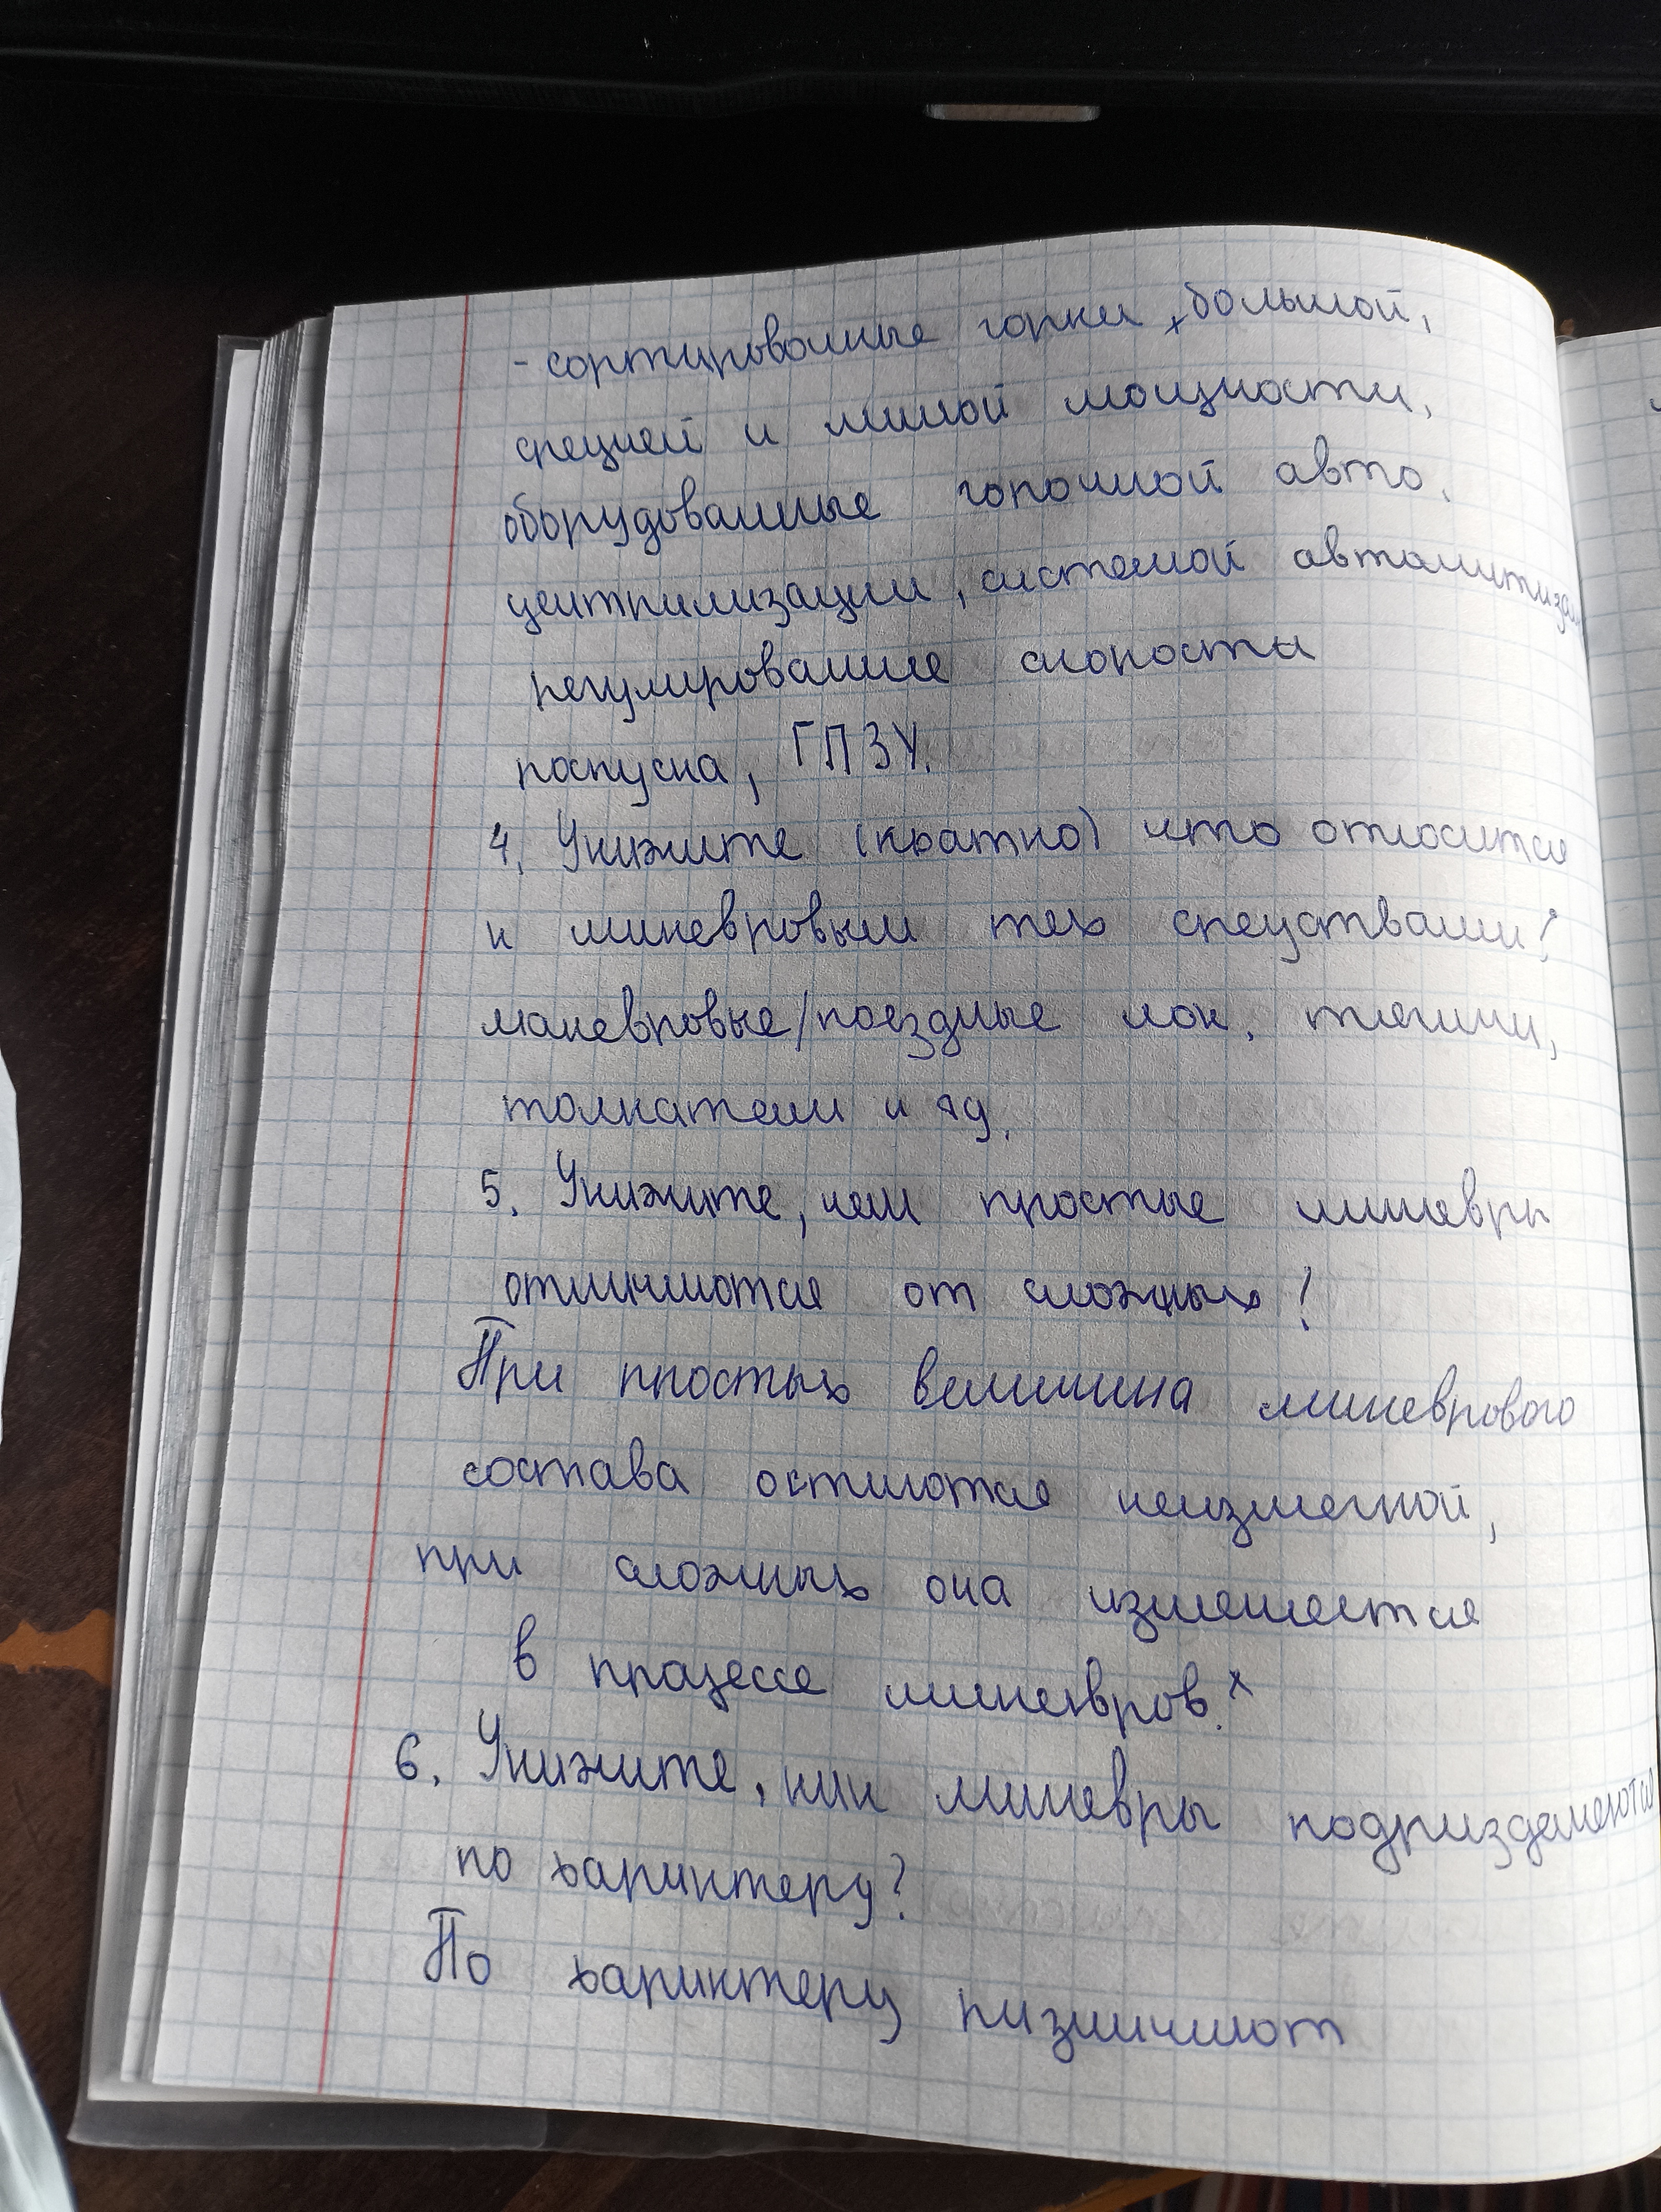 - сортировочные горки большой,
средней и малой мощности,
оборудованные горочной авто.
централизации, системой автоматизац
регулирование скорости
роспуска, ГПЗУ.
4. Укажите (кратко) что относится
к маневровым тех средствам?
маневровые/поездные лок. тягачи,
толкатели и др.
5. Укажите, чем простые маневры
отличаются от сложных?
При простых величина маневрового
состава остаются неизменной,
при сложных она изменяется
в процессе маневров.
6. Укажите, как маневры подразделяются
по характеру?
По характеру различают